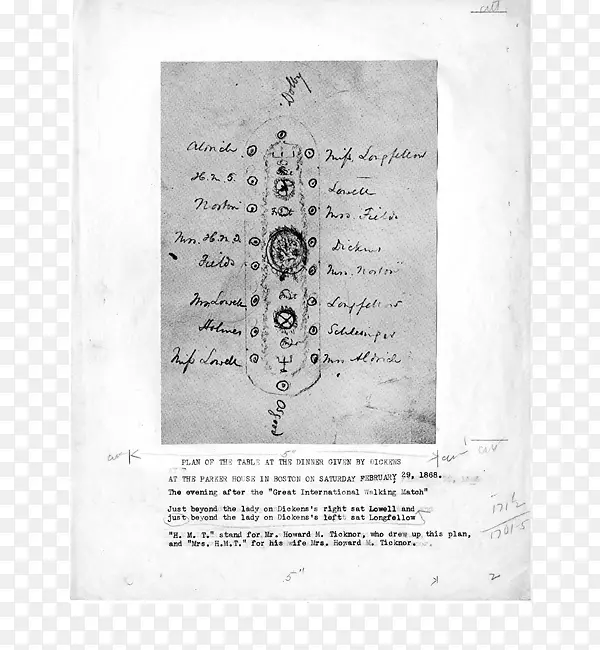 Dolby
Aldrich
Miss Longfellow
H. M. T.
Lowell
Norton
Mrs. Fields
Mrs. H.M.T.
Dickens
Fields
Mrs. Norton
Mrs Lowell
Longfellow
Holmes
Schlesinger
Miss Lowell
Mrs Aldrich
Osgood
PLAN OF THE TABLE AT THE DINNER GIVEN BY DICKENS
AT THE PARKER HOUSE IN BOSTON ON SATURDAY FEBRUARY 29, 1868.
The evening after the "Great International Walking Match"
Just beyond the lady on Dickens's right sat Lowell and
just beyond the lady on Dickens's left sat Longfellow
"H. M. T." stand for Mr. Howard M. Ticknor, who drew up this plan,
and "Mrs. H.M.T." for his wife Mrs. Howard M. Ticknor.
5"
2